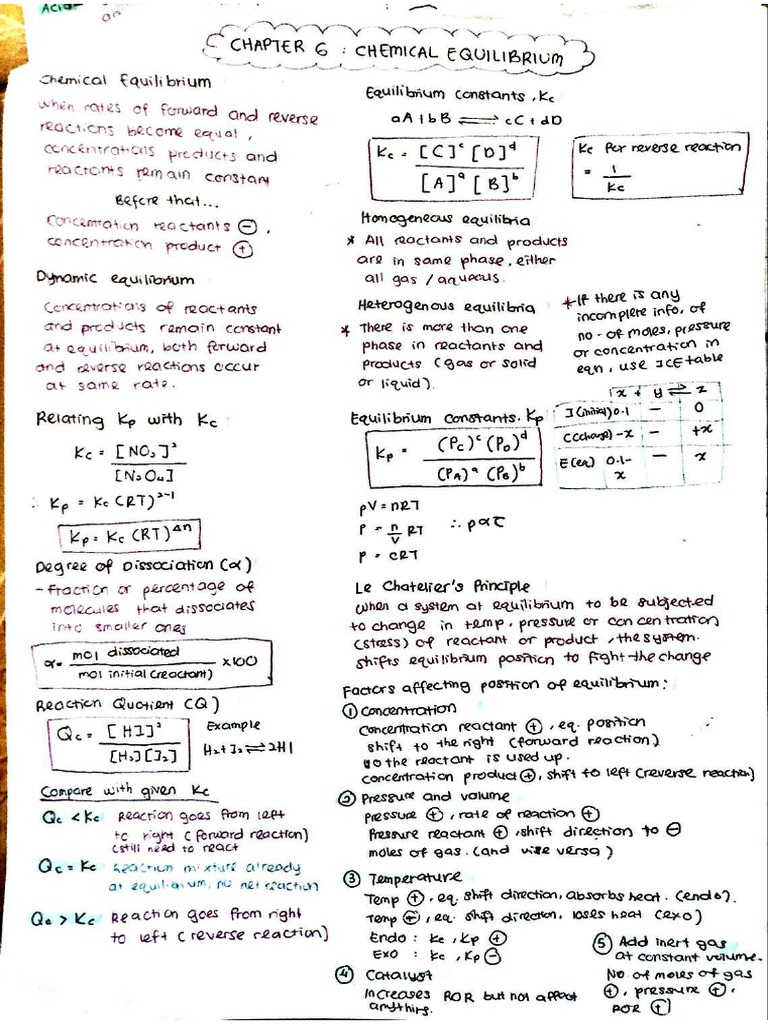 Acid
CHAPTER 6 : CHEMICAL EQUILIBRIUM
Chemical Equilibrium
When rates of forward and reverse
reactions become equal,
concentrations products and
reactants remain constant
Before that...
Concentration reactants ⊖,
concentration product ⊕
Dynamic equilibrium
Concentrations of reactants
and products remain constant
at equilibrium, both forward
and reverse reactions occur
at same rate.
Relating Kp with Kc
Kc = [NO2]²
[N2O4]
∴ Kp = Kc (RT)²⁻¹
Kp = Kc (RT)^Δn
Degree of Dissociation (α)
- Fraction or percentage of
molecules that dissociates
into smaller ones
α = mol dissociated
mol initial (reactant) x100
Reaction Quotient (Q)
Qc = [HI]²
[H2][I2]
Example
H2 + I2 ⇌ 2HI
Compare with given Kc
Qc < Kc Reaction goes from left
to right (forward reaction)
(still need to react)
Qc = Kc Reaction mixture already
at equilibrium, no net reaction
Qc > Kc Reaction goes from right
to left (reverse reaction)
Equilibrium constants, Kc
aA + bB ⇌ cC + dD
Kc = [C]^c [D]^d
[A]^a [B]^b
Kc for reverse reaction
= 1
Kc
Homogeneous equilibria
* All reactants and products
are in same phase, either
all gas / aqueous.
Heterogenous equilibria
* There is more than one
phase in reactants and
products (gas or solid
or liquid).
* If there is any
incomplete info, of
no. of moles, pressure
or concentration in
eqn, use ICE table
x + y ⇌ z
I (initial) 0.1 — 0
C (change) -x — +x
E (eq) 0.1- — x
x
Equilibrium Constants, Kp
Kp = (Pc)^c (PD)^d
(PA)^a (PB)^b
pV = nRT
P = n/V RT ∴ p α T
P = cRT
Le Chatelier's Principle
When a system at equilibrium to be subjected
to change in temp, pressure or concentration
(stress) of reactant or product, the system.
shifts equilibrium position to fight the change
Factors affecting position of equilibrium :
① Concentration
Concentration reactant ⊕, eq. position
shift to the right (forward reaction)
so the reactant is used up.
concentration product ⊕, shift to left (reverse reaction)
② Pressure and volume
Pressure ⊕, rate of reaction ⊕
Pressure reactant ⊕, shift direction to ⊖
moles of gas. (and vise versa)
③ Temperature
Temp ⊕, eq. shift direction, absorbs heat. (endo).
Temp ⊖, eq. shift direction, loses heat (exo)
Endo : Kc, Kp ⊕
Exo : Kc, Kp ⊖
④ Catalyst
Increases ROR but not affect
anything.
⑤ Add inert gas
at constant volume.
No. of moles of gas
⊕, pressure ⊕,
ROR ⊕